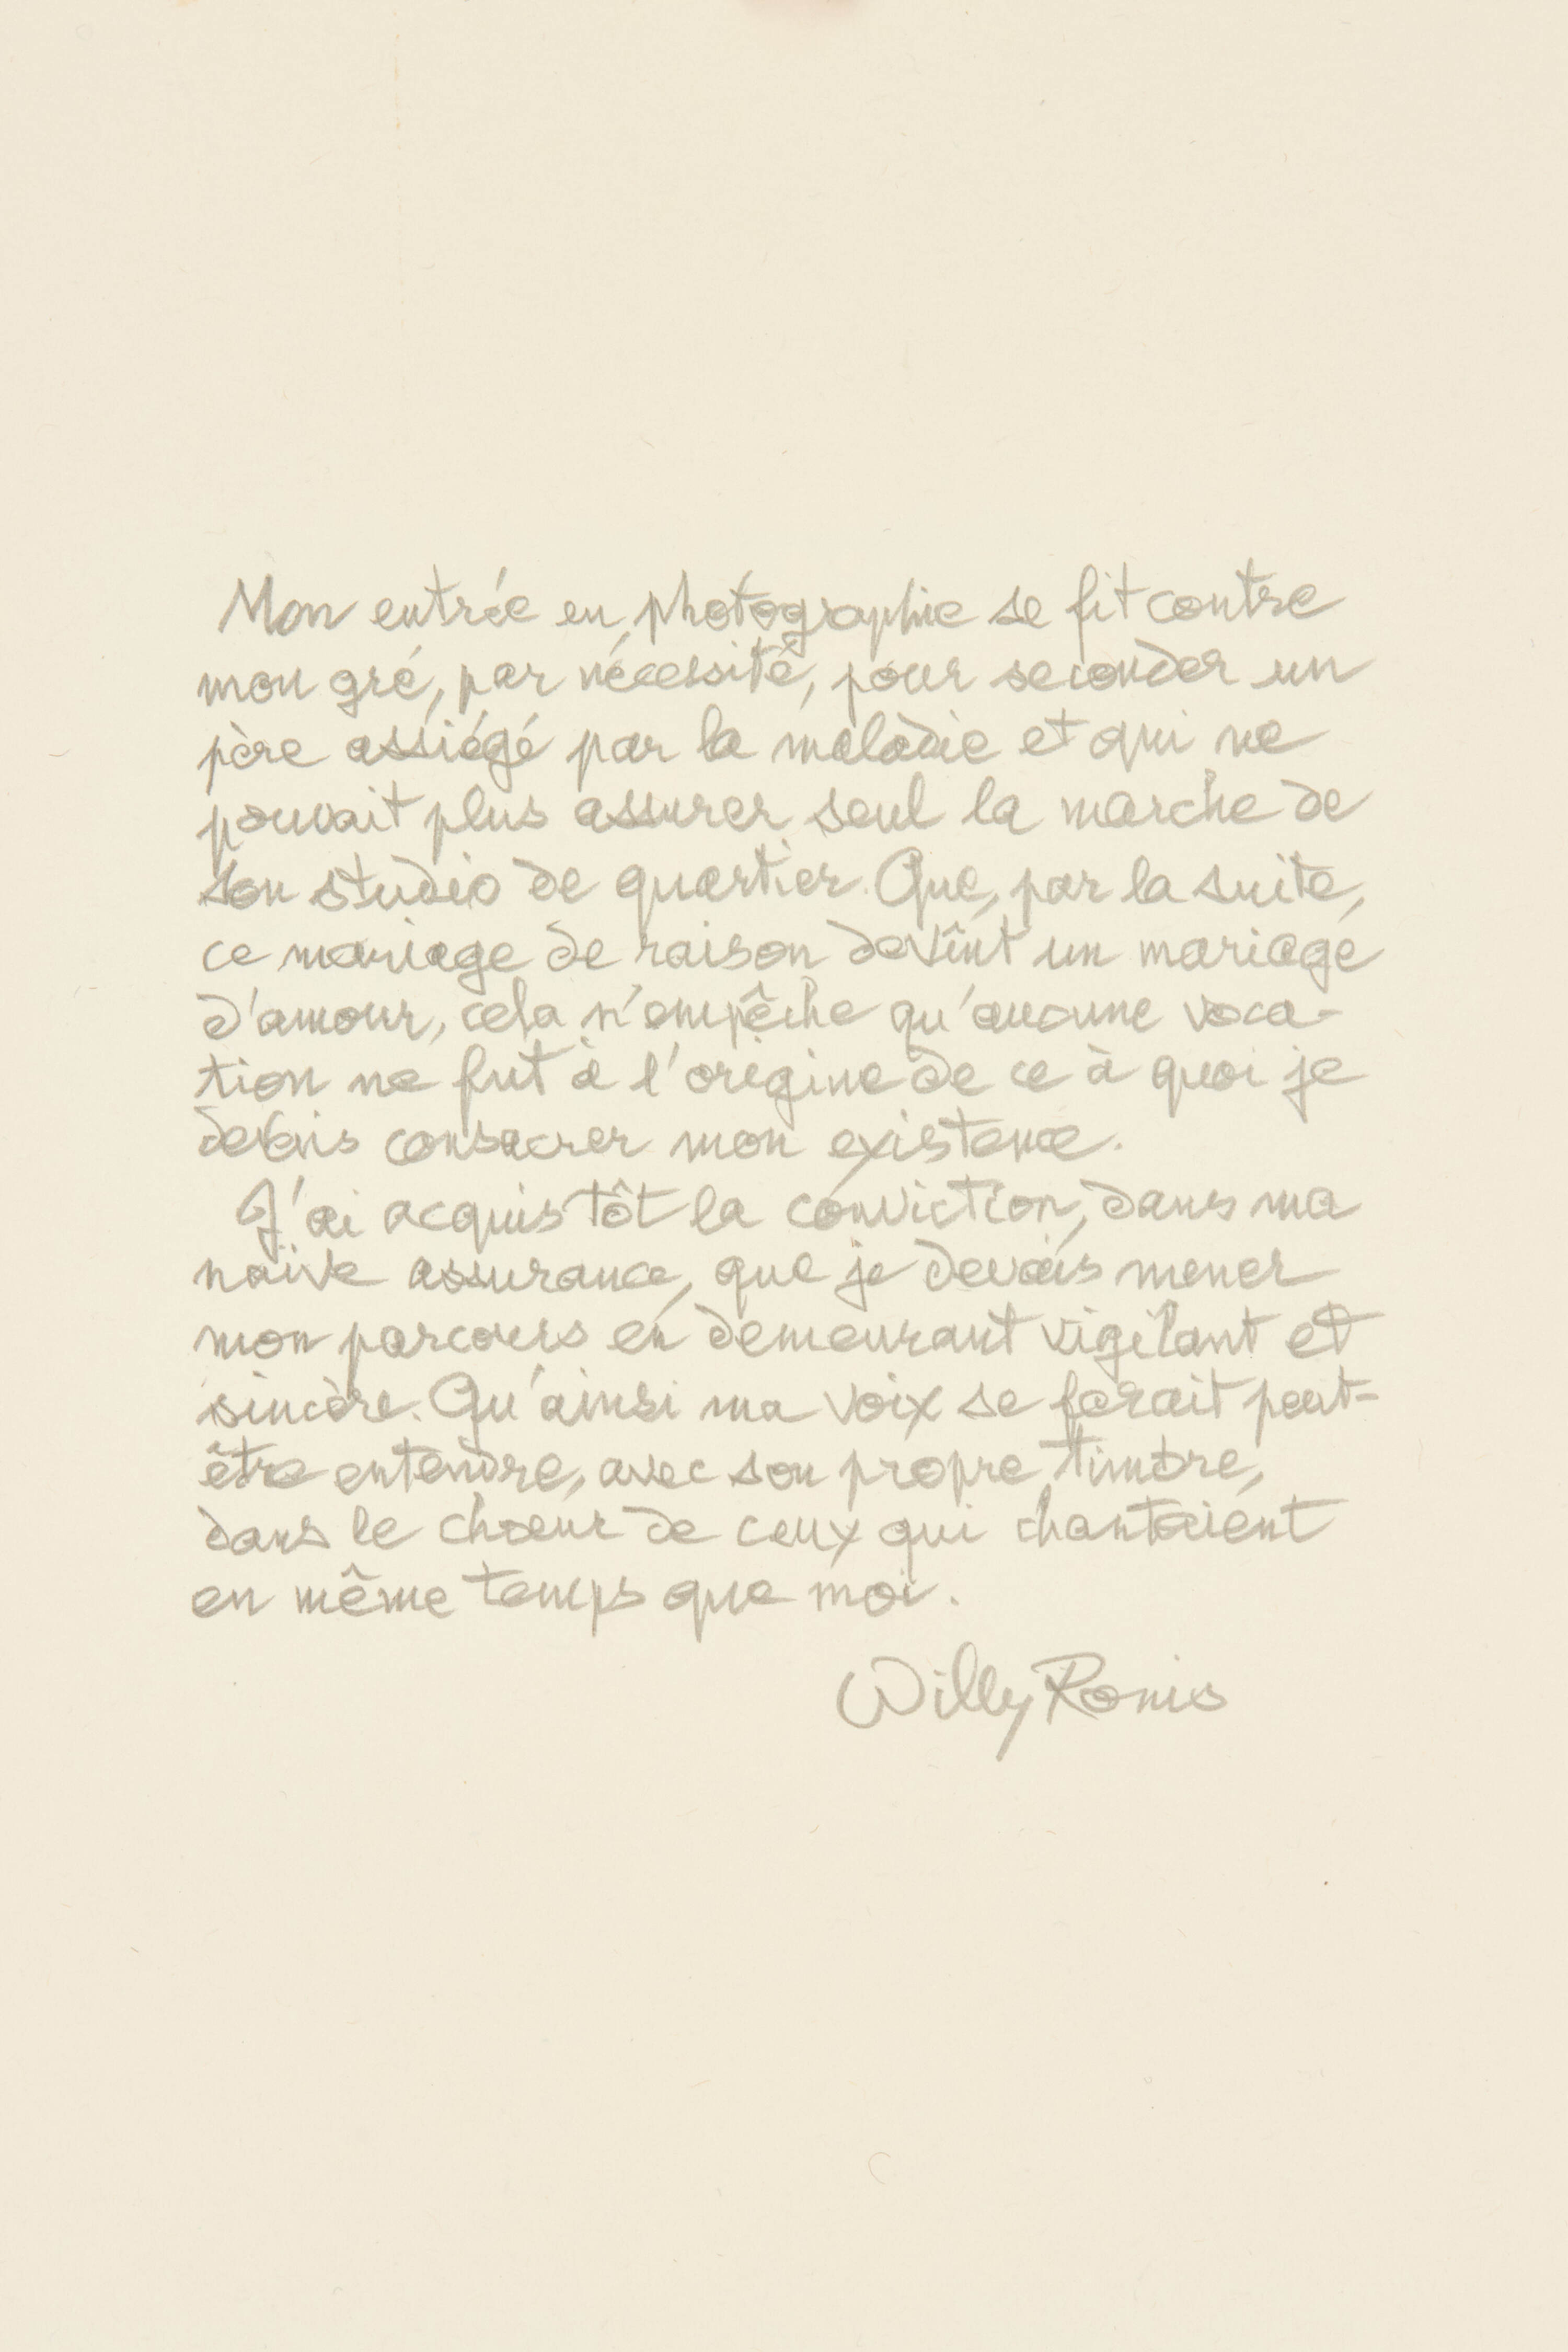 Mon entrée en photographie se fit contre
mon gré, par nécessité, pour seconder un
père assiégé par la maladie et qui ne
pouvait plus assurer seul la marche de
son studio de quartier. Que, par la suite,
ce mariage de raison devînt un mariage
d'amour, cela n'empêche qu'aucune voca-
tion ne fut à l'origine de ce à quoi je
devais consacrer mon existence.
J'ai acquis tôt la conviction, dans ma
naïve assurance, que je devais mener
mon parcours en demeurant vigilant et
sincère. Qu'ainsi ma voix se ferait peut-
être entendre, avec son propre timbre,
dans le chœur de ceux qui chantaient
en même temps que moi.
Willy Ronis